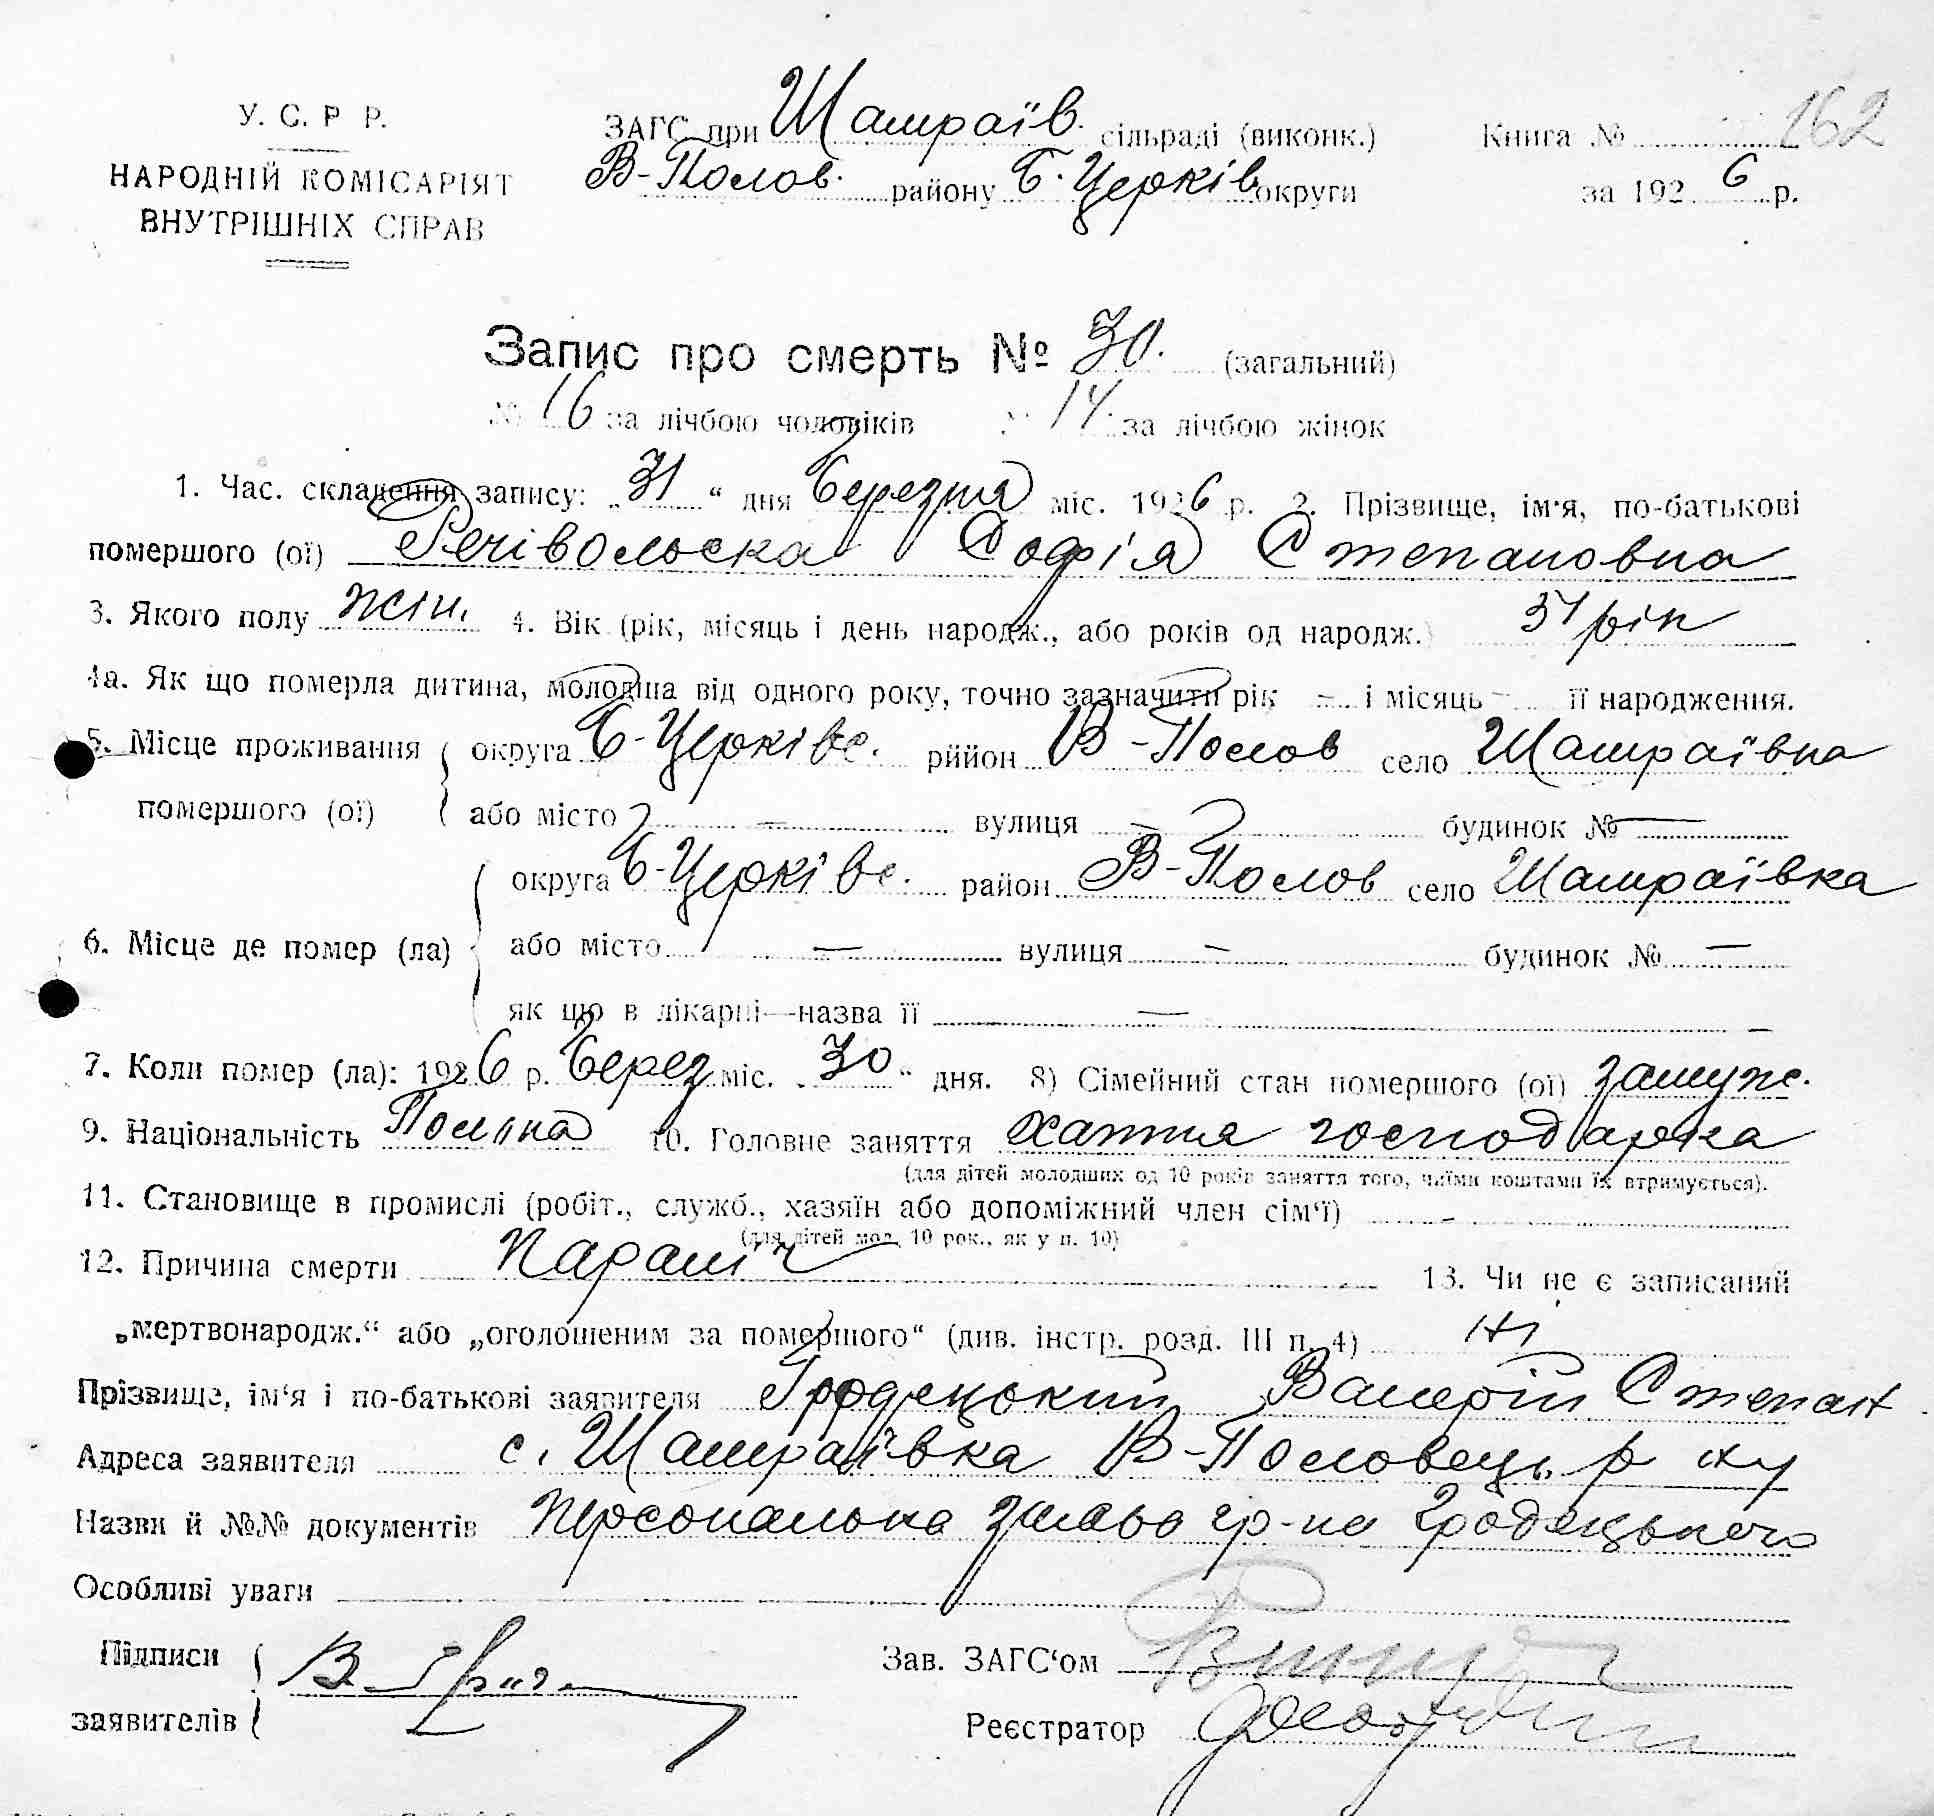 У. С. Р Р.
НАРОДНІЙ КОМІСАРІЯТ
ВНУТРІШНІХ СПРАВ
ЗАГС при Шамраїв. сільраді (виконк.)
В-Полов. району Б. Церків округи
Книга № 162
за 1926 р.
Запис про смерть № 30. (загальний)
№ 16 за лічбою чоловіків № 14 за лічбою жінок
1. Час. складення запису: „31“ дня Березня міс. 1926 р. 2. Прізвище, ім‘я, по-батькові
помершого (ої) Речівольска Софія Степановна
3. Якого полу жін. 4. Вік (рік, місяць і день народж., або років од народж.) 51 рік
4а. Як що померла дитина, молодша від одного року, точно зазначити рік – і місяць – її народження.
5. Місце проживання округа Б-Церківс. рййон В-Полов село Шамраївка
помершого (ої) або місто — вулиця — будинок № —
округа Б-Церківс. район В-Полов село Шамраївка
6. Місце де помер (ла) або місто — вулиця — будинок № —
як що в лікарні—назва її — —
7. Коли помер (ла): 1926 р. Берез міс. „30“ дня. 8) Сімейний стан помершого (ої) замуж.
9. Національність Полька 10. Головне заняття хатня господарка
(для дітей молодших од 10 років заняття того, чиїми коштами їх втримується).
11. Становище в промислі (робіт., служб., хазяїн або допоміжний член сім‘ї) -
(для дітей мол. 10 рок., як у п. 10)
12. Причина смерти Параліч 13. Чи не є записаний
„мертвонародж.“ або „оголошеним за помершого“ (див. інстр. розд. III п. 4) Ні
Прізвище, ім‘я і по-батькові заявителя Гродецький Валерій Степан
Адреса заявителя с. Шамраївка В-Половець. р-ну
Назви й №№ документів персональна заява гр-на Гродецького
Особливі уваги
Підписи
заявителів
Зав. ЗАГС‘ом
Реєстратор